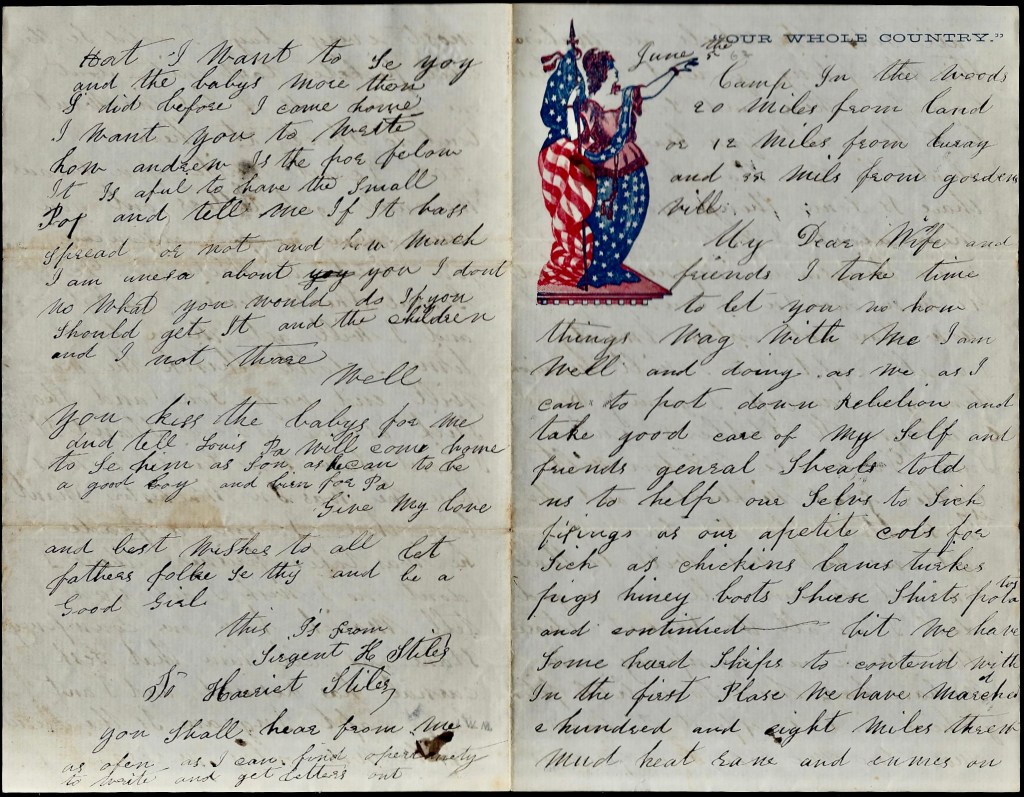 "OUR WHOLE COUNTRY."
June the 5 62
Camp In the Woods
20 Miles from land
or 12 Miles from luray
and 32 mils from gordens
vill
My Dear Wife and
friends I take time
to let you no how
things Wag With Me I am
Well and doing as We as I
can to pot down Rebelion and
take good care of My Self and
friends genral Sheals told
us to help our Selvs to Sich
fixings as our apetite cols for
Sich as chickins lams turkes
pigs hiney boots Sheese Shirts potatos
and continued but We have
Some hard Ships to contend with
In the first Plase We have Marched
e hundred and eight Miles threw
Mud heat Rane and enmes on
Hat I Want to Se yoy
and the babys more then
I did before I come home
I Want you to Write
how andrew Is the poe felow
It Is aful to have the Small
Pox and tell me If It hass
Spread or not and how Much
I am unesa about yoy you I dont
no What you would do If you
Should get It and the children
and I not thare
Well
you kiss the babys for me
and tell Louis Pa Will come home
to Se hem as Son as he can to be
a good boy and for Pa
Give My love
and best Wishes to all let
fathers folke Se thiy and be a
Good Girl
this Is from
Sirgent H Stiles
To Harriet Stiles
you Shall hear from Me
as ofen as I can find opertunety
to write and get letters out
W. M.